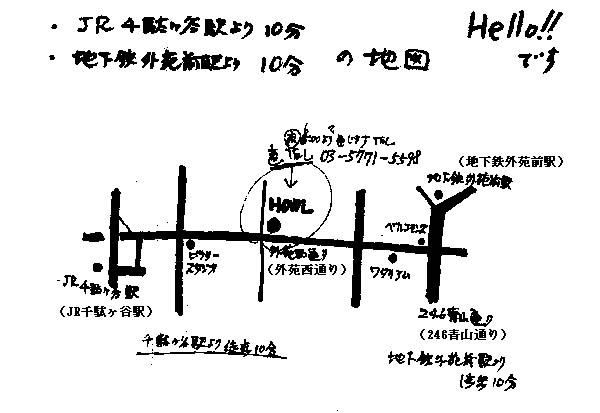 ・JR千駄ヶ谷駅より 10分
・地下鉄外苑前駅より 10分 の地図
Hello!!
です
TEL
TEL 03-5771-5598
HOWL
(地下鉄外苑前駅)
地下鉄外苑前駅
ベルコモンズ
ビクター
スタジオ
外苑西通り
(外苑西通り)
ワタリウム
JR千駄ヶ谷駅
(JR千駄ヶ谷駅)
246青山通り
(246青山通り)
千駄ヶ谷駅より徒歩10分
地下鉄外苑前駅より
徒歩10分